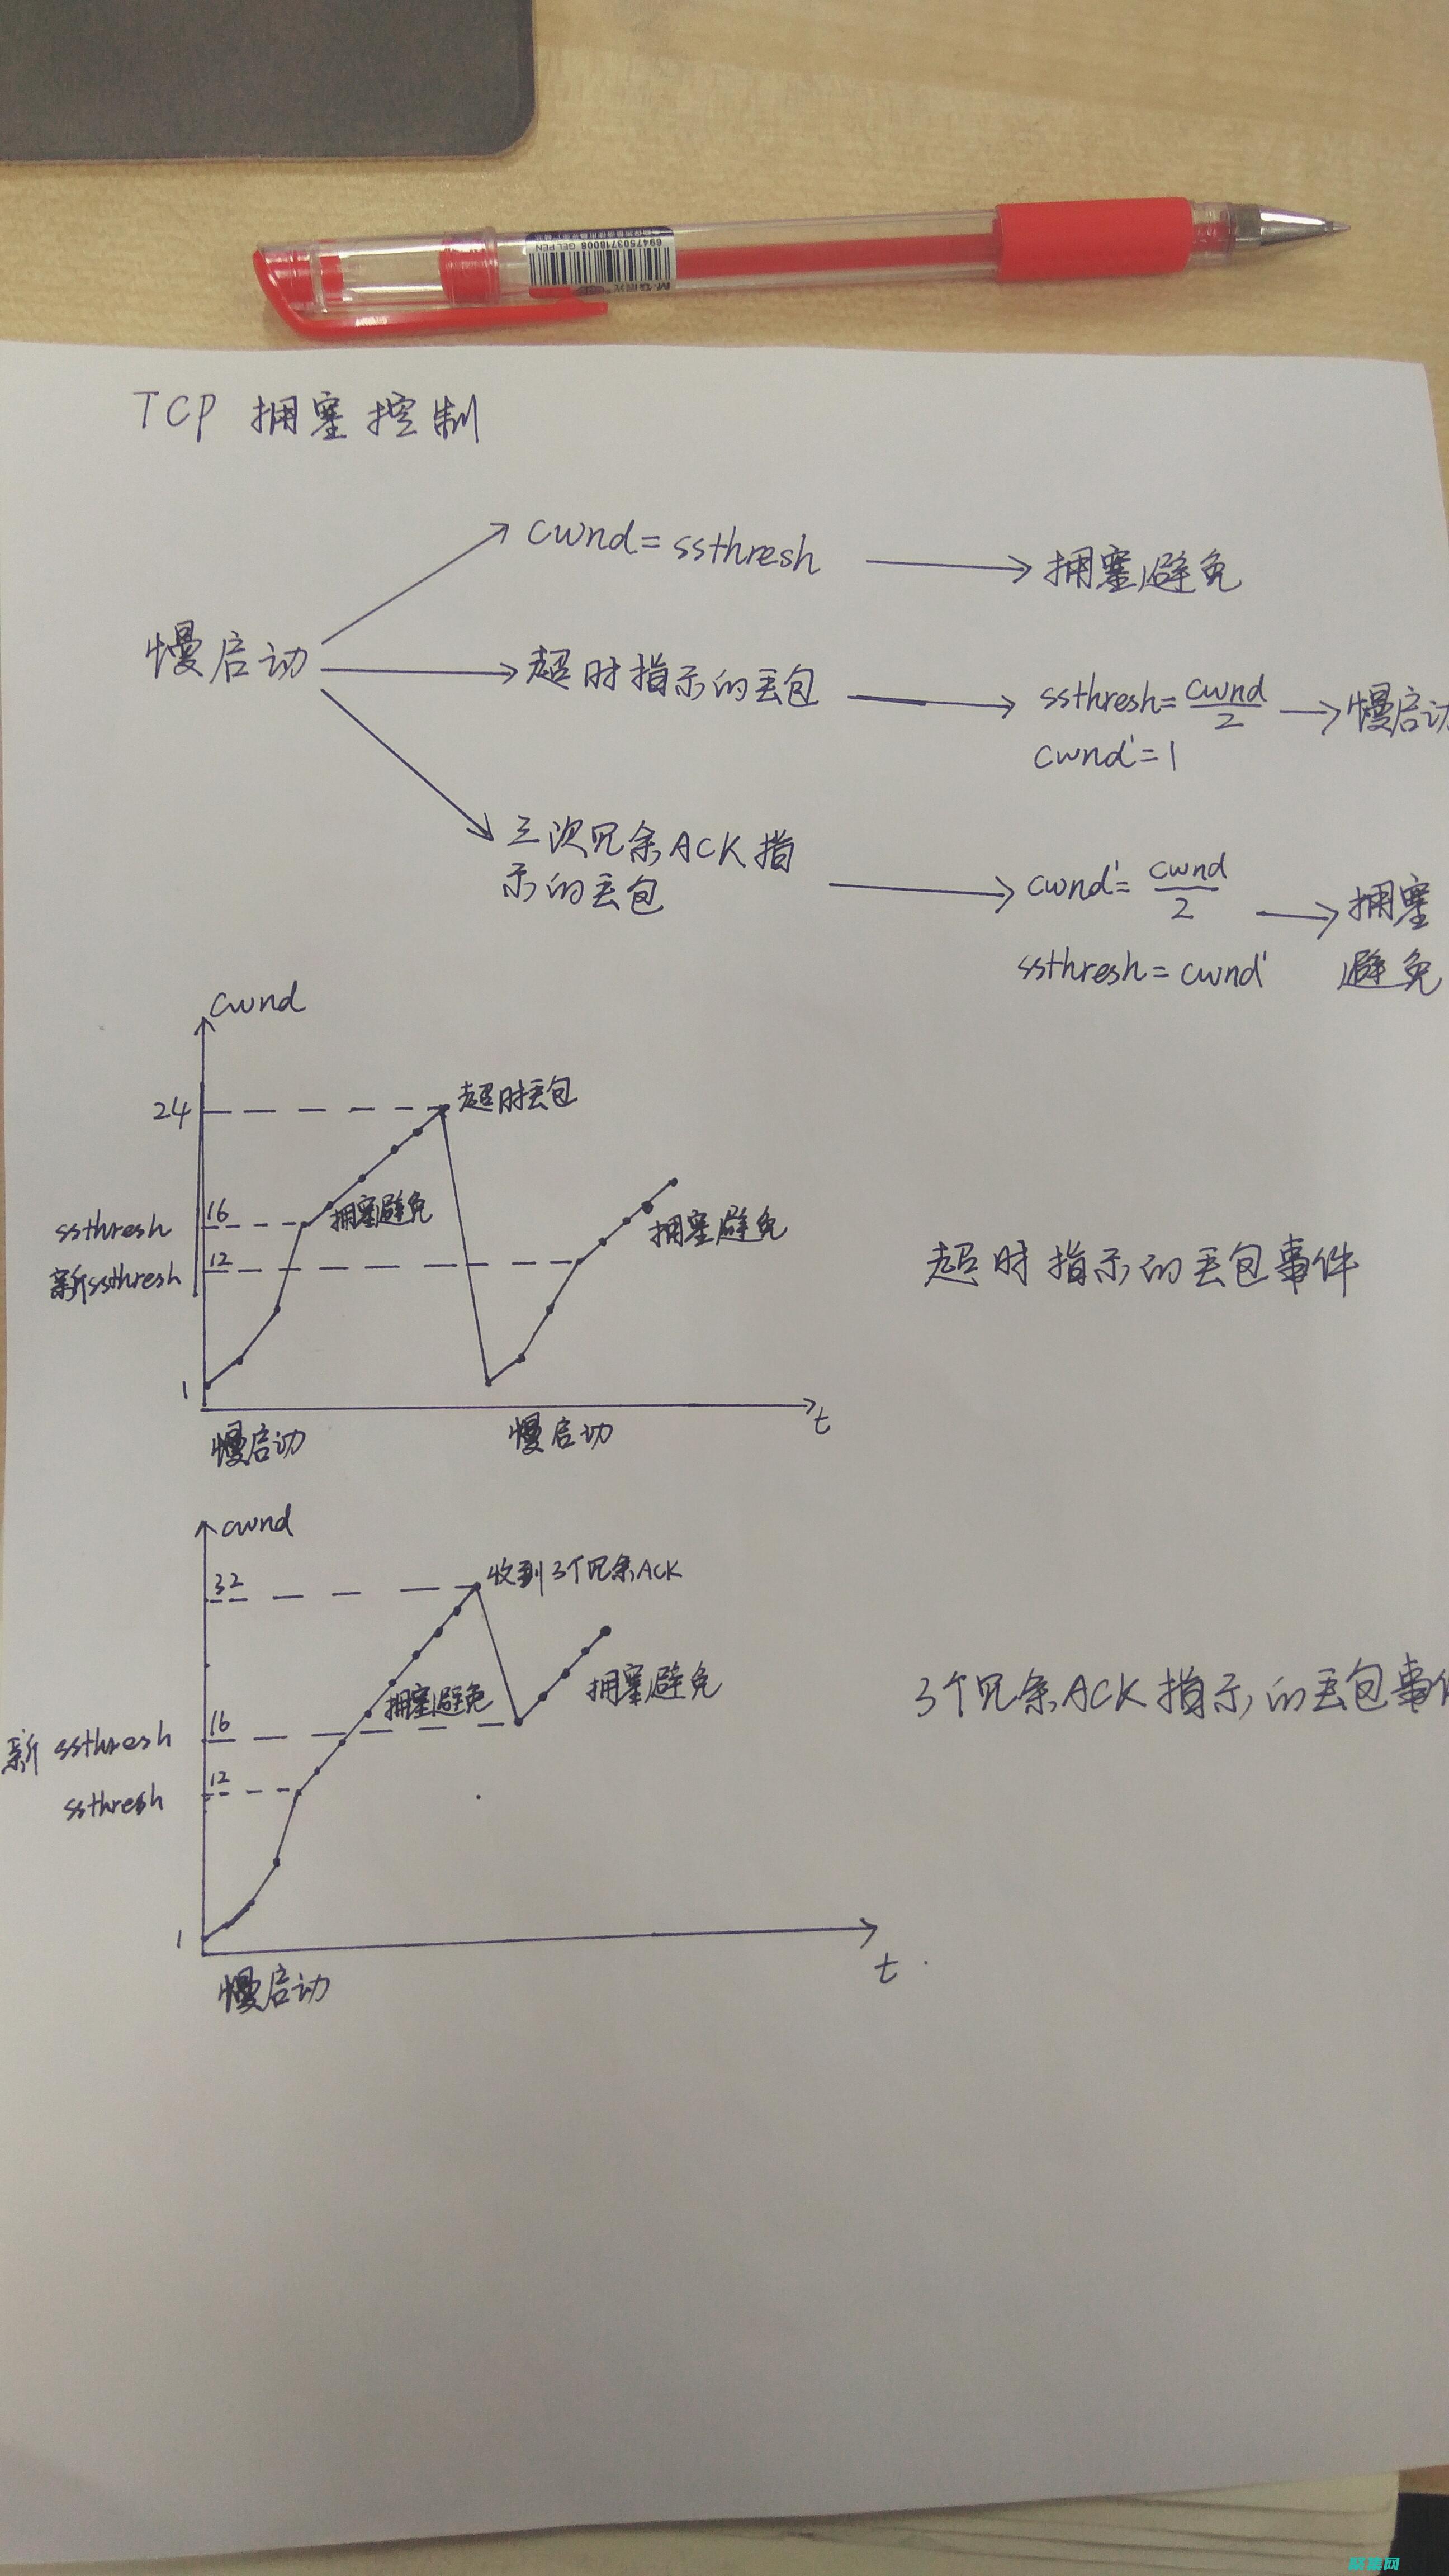 6947503718008 GEL PEN
M&G 晨光
TCP 拥塞控制
cwnd = ssthresh
拥塞避免
慢启动
超时指示的丢包
ssthresh = cwnd/2
慢启动
cwnd' = 1
三次冗余ACK指
示的丢包
cwnd' = cwnd/2
拥塞
ssthresh = cwnd'
避免
cwnd
24
超时丢包
ssthresh
16
拥塞避免
拥塞避免
新ssthresh
12
超时指示的丢包事件
1
t
慢启动
慢启动
cwnd
32
收到3个冗余ACK
拥塞避免
拥塞避免
3个冗余ACK指示的丢包事件
新 ssthresh
16
ssthresh
12
1
t
慢启动